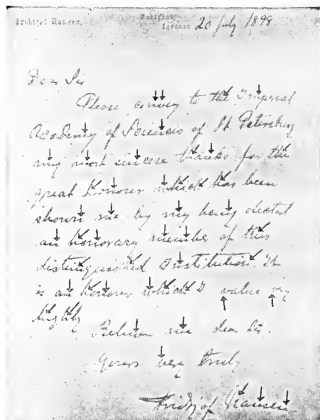 Fridtjof Nansen. Lysaker 20 July 1898
Dear Sir
Please convey to the Imperial
Academy of Sciences of St. Petersburg
my most sincere thanks for the
great honour which has been
shown me by my being elected
an honorary member of this
distinguished Institution. It
is an honour which I value
highly
Believe me dear Sir.
Yours very truly
Fridtjof Nansen